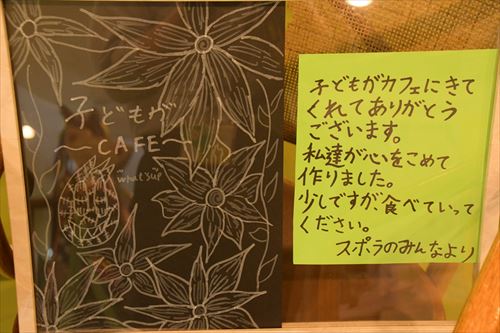 子どもが
～CAFE～
what'sup
子どもがカフェにきて
くれてありがとう
ございます。
私達が心をこめて
作りました。
少しですが、食べていって
ください。
スポラのみんなより